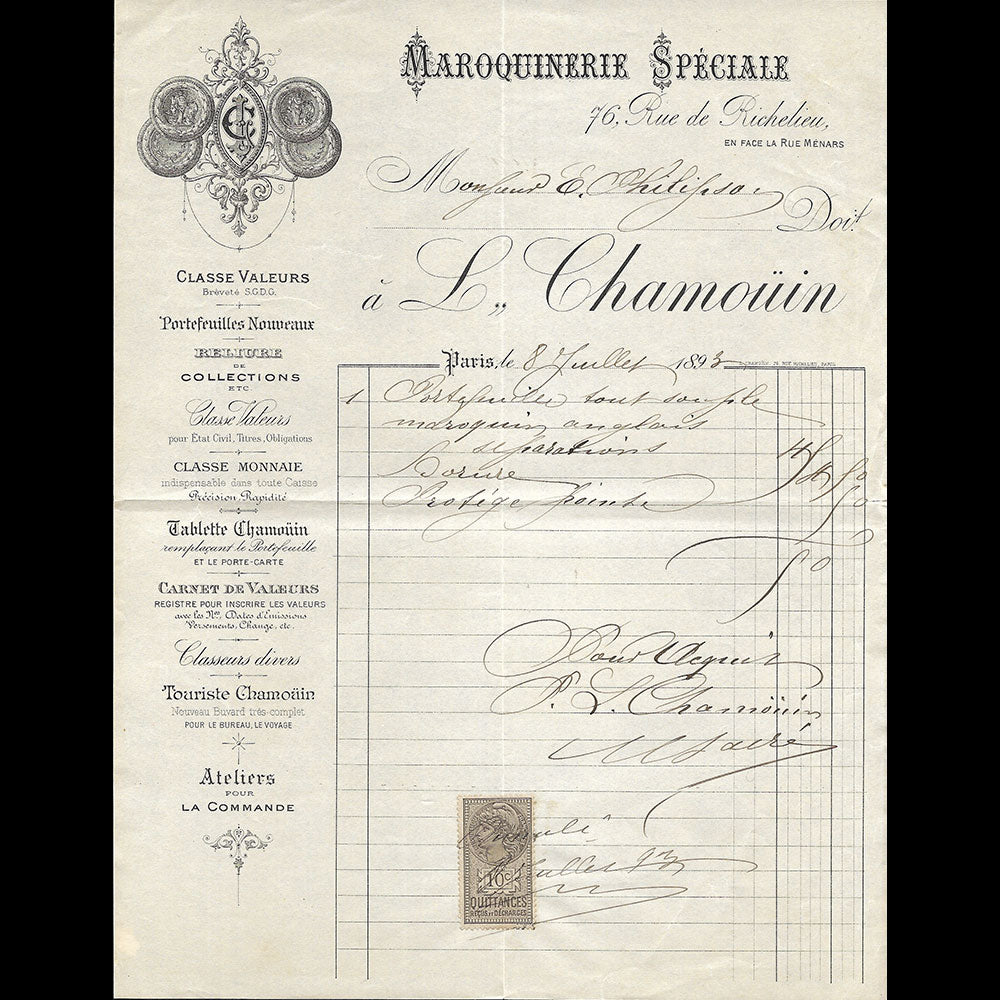 MAROQUINERIE SPÉCIALE
76, Rue de Richelieu,
EN FACE LA RUE MÉNARS
Monsieur E. Philipson
Doit
à L. Chamoüin
Paris, le 8 Juillet 1893
1 Portefeuille tout souple
maroquin anglais
séparations
Dorure
Protège pointe
50
Pour Acquit
P. L. Chamoüin
Juillet 93
10c
QUITTANCES
REÇUS ET DÉCHARGES
CLASSE VALEURS
Brèveté S.G.D.G.
Portefeuilles Nouveaux
RELIURE
DE
COLLECTIONS
ETC.
Classe Valeurs
pour État Civil, Titres, Obligations
CLASSE MONNAIE
indispensable dans toute Caisse
Précision Rapidité
Tablette Chamoüin
remplaçant le Portefeuille
ET LE PORTE-CARTE
CARNET DE VALEURS
REGISTRE POUR INSCRIRE LES VALEURS
avec les Nos, Dates d'Emissions
Versements, Change, etc.
Classeurs divers
Touriste Chamoüin
Nouveau Buvard très-complet
POUR LE BUREAU, LE VOYAGE
Ateliers
POUR
LA COMMANDE